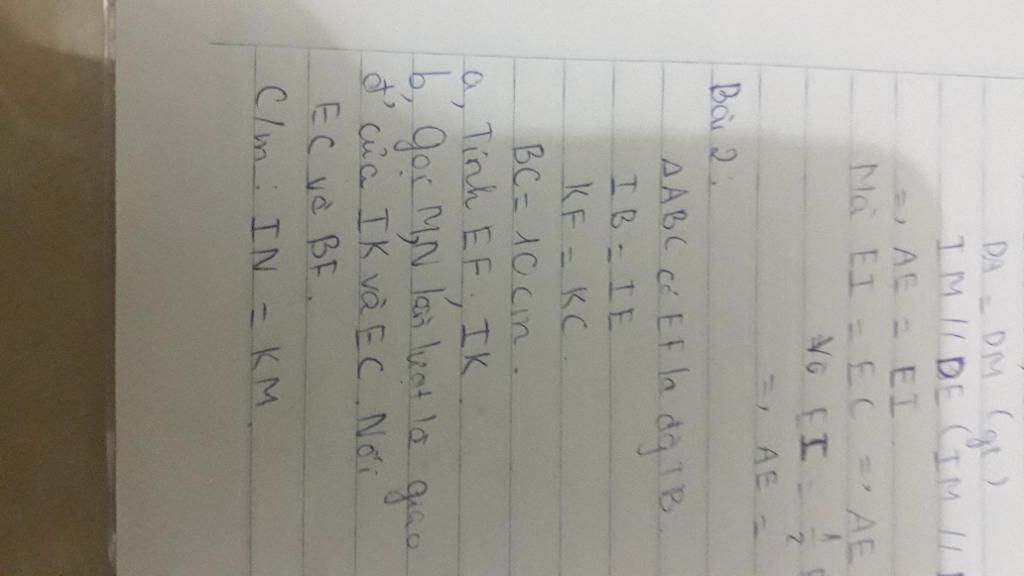 DA = DM (gt)
IM // DE (IM //
=, AE = EI
Mà EI = EC =, AE
Và EI = 1/2
=, AE =
Bài 2:
ΔABC có EF là đg TB.
IB = IE
KF = KC.
BC = 10cm.
a, Tính EF, IK
b, Gọi M, N lần lượt là giao
đ' của IK và EC. Nối
EC và BF.
C/m: IN = KM.